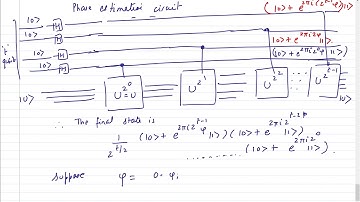 Phase estimation circuit
(|0> + e^{2πi(2^{t-1}φ)}|1>)
|0> H
't' qubit
|0> H
(|0> + e^{2πi2^1φ}|1>
|0> H
(|0> + e^{2πi2^0φ}|1>
|0> H
|u> U^{2^0} = U U^{2^1} U^{2^2} U^{2^{t-1}} |u>
∴ The final state is
1/2^{t/2} (|0> + e^{2πi2^{t-1}φ}|1>) (|0> + e^{2πi2^{t-2}φ}|1>)
.......... (|0> + e^{2πi2^0φ}|1>).
suppose φ = 0.φ₁